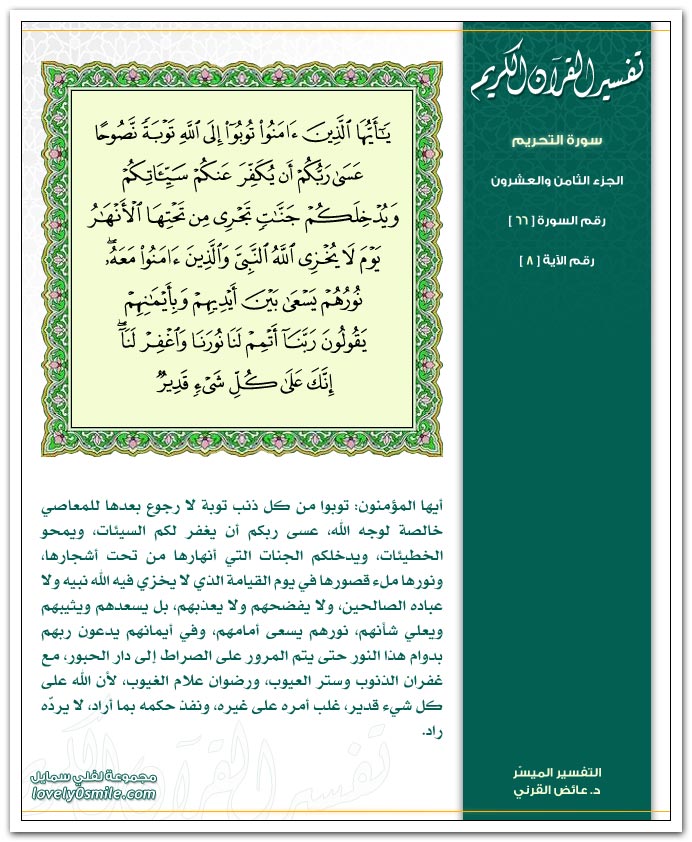 تفسير القرآن الكريم
سورة التحريم
الجزء الثامن والعشرون
رقم السورة [ ٦٦ ]
رقم الآية [ ٨ ]
يَٰٓأَيُّهَا ٱلَّذِينَ ءَامَنُوا۟ تُوبُوٓا۟ إِلَى ٱللَّهِ تَوْبَةً نَّصُوحًا
عَسَىٰ رَبُّكُمْ أَن يُكَفِّرَ عَنكُمْ سَيِّـَٔاتِكُمْ
وَيُدْخِلَكُمْ جَنَّٰتٍ تَجْرِى مِن تَحْتِهَا ٱلْأَنْهَٰرُ
يَوْمَ لَا يُخْزِى ٱللَّهُ ٱلنَّبِىَّ وَٱلَّذِينَ ءَامَنُوا۟ مَعَهُۥۖ
نُورُهُمْ يَسْعَىٰ بَيْنَ أَيْدِيهِمْ وَبِأَيْمَٰنِهِمْ
يَقُولُونَ رَبَّنَآ أَتْمِمْ لَنَا نُورَنَا وَٱغْفِرْ لَنَآۖ
إِنَّكَ عَلَىٰ كُلِّ شَىْءٍ قَدِيرٌ
أيها المؤمنون: توبوا من كل ذنب توبة لا رجوع بعدها للمعاصي
خالصة لوجه الله، عسى ربكم أن يغفر لكم السيئات، ويمحو
الخطيئات، ويدخلكم الجنات التي أنهارها من تحت أشجارها،
ونورها ملء قصورها في يوم القيامة الذي لا يخزي فيه الله نبيه ولا
عباده الصالحين، ولا يفضحهم ولا يعذبهم، بل يسعدهم ويثيبهم
ويعلي شأنهم، نورهم يسعى أمامهم، وفي أيمانهم يدعون ربهم
بدوام هذا النور حتى يتم المرور على الصراط إلى دار الحبور، مع
غفران الذنوب وستر العيوب، ورضوان علام الغيوب، لأن الله على
كل شيء قدير، غلب أمره على غيره، ونفذ حكمه بما أراد، لا يردّه
راد.
تفسير القرآن الكريم
التفسير الميسّر
د. عائض القرني
مجموعة لفلي سمايل
lovely0smile.com